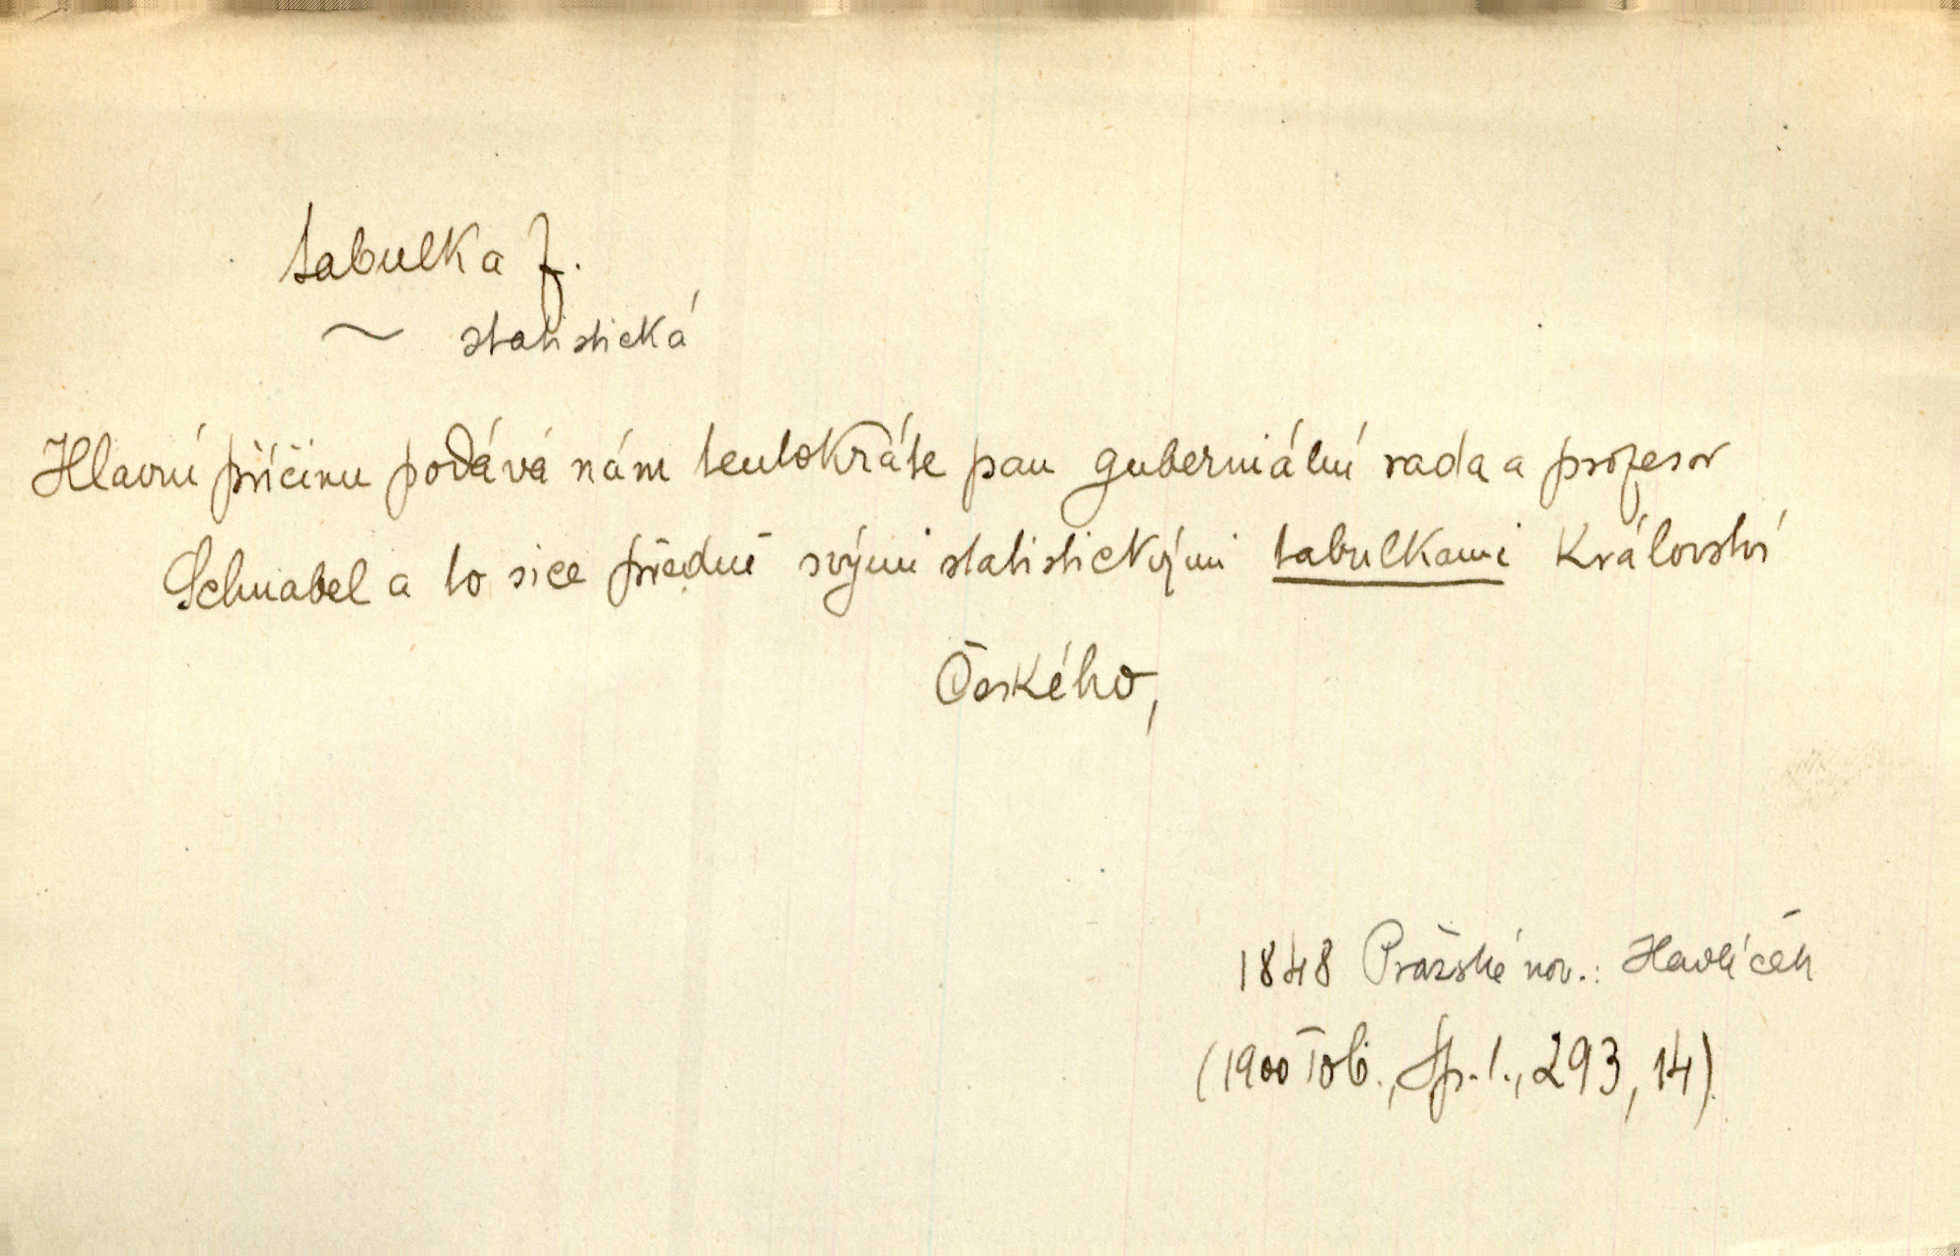 tabulka f.
~ statistická
Hlavní příčinu podává nám tentokráte pan guberniální rada a profesor
Schnabel a to sice předně svými statistickými tabulkami Království
Českého,
1848 Pražské nov.: Havlíček
(1900 Tob., Sp. 1., 293, 14).